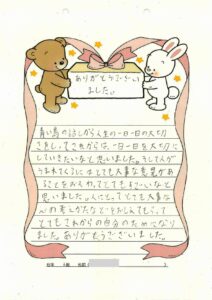 ありがとうござい
ました。
青い鳥の話しから人生の一日一日の大切
さをしってこれからは一日一日を大切に
していきたいなと思いました。そして人が
うまれてくるにはとても大事な意思があ
ることをおそわってとてもすごいなと
思いました。人にとってとても大事な
心の考えかたなどをおしえてもらって
とてもこれからの自分のためになり
ました。ありがとうございました。